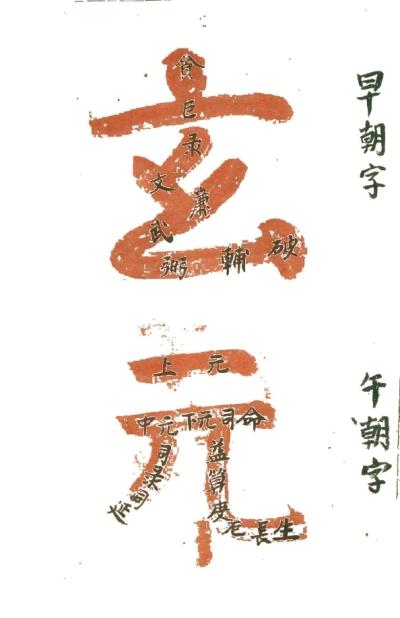 早朝字
玄
貪巨彔文廉武
弼輔破
午朝字
元
上元
中元下元司命
司录
益算度厄長生